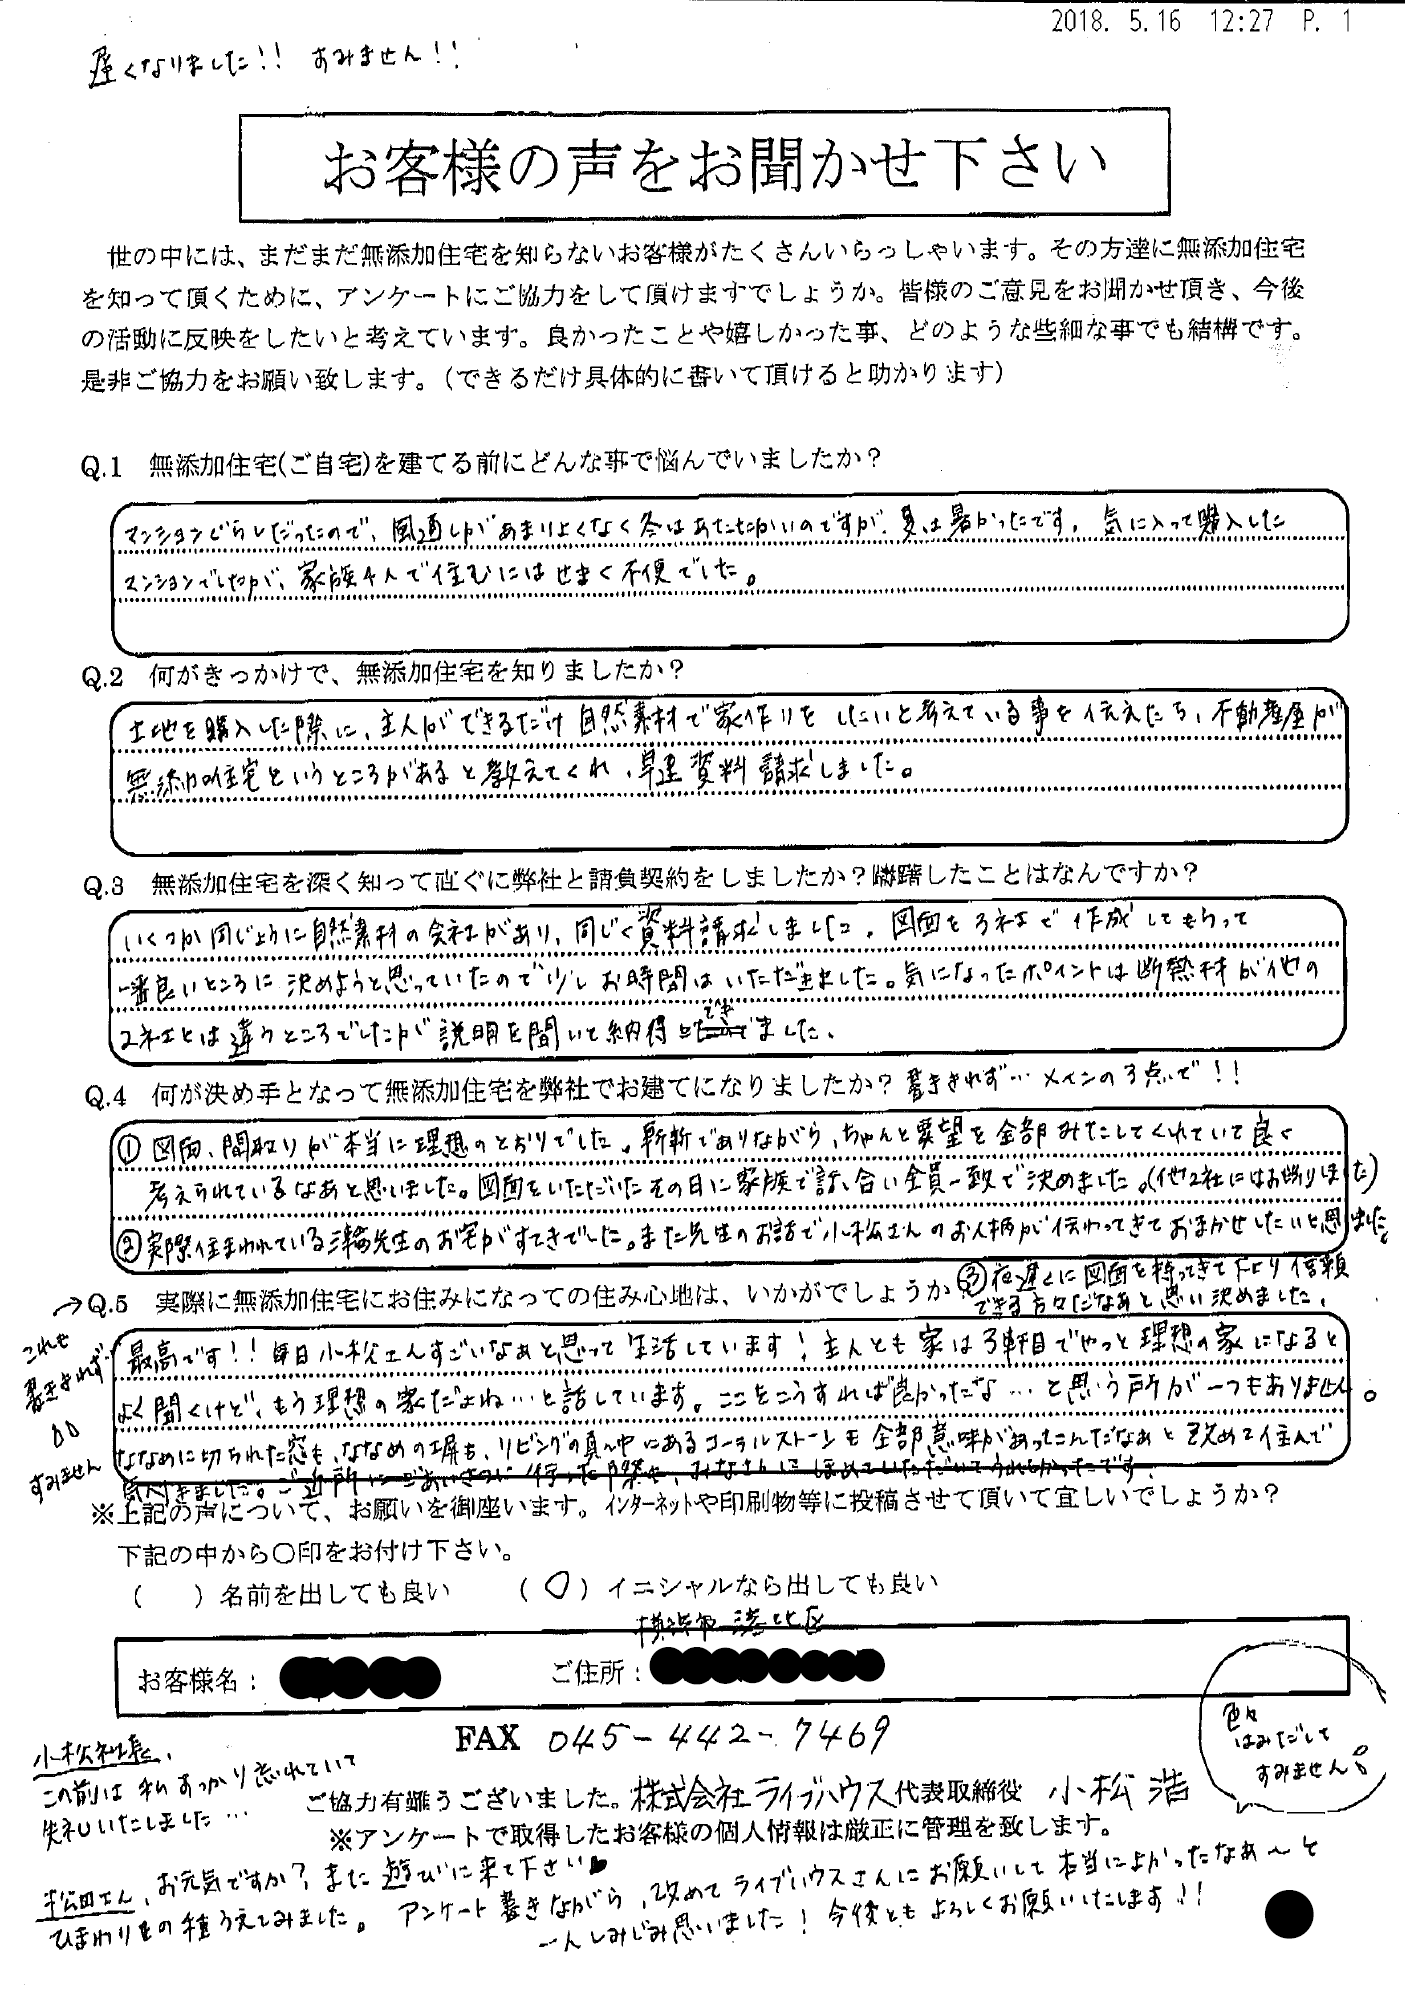 2018. 5.16 12:27 P. 1
遅くなりました!! すみません!!
お客様の声をお聞かせ下さい
世の中には、まだまだ無添加住宅を知らないお客様がたくさんいらっしゃいます。その方達に無添加住宅
を知って頂くために、アンケートにご協力をして頂けますでしょうか。皆様のご意見をお聞かせ頂き、今後
の活動に反映をしたいと考えています。良かったことや嬉しかった事、どのような些細な事でも結構です。
是非ご協力をお願い致します。(できるだけ具体的に書いて頂けると助かります)
Q.1 無添加住宅(ご自宅)を建てる前にどんな事で悩んでいましたか?
マンションぐらしだったので、風通しがあまりよくなく冬はあたたかいのですが、夏は暑かったです。気に入って購入した
マンションでしたが、家族4人で住むにはせまく不便でした。
Q.2 何がきっかけで、無添加住宅を知りましたか?
土地を購入した際に、主人ができるだけ自然素材で家作りをしたいと考えている事を伝えたら、不動産屋が
無添加住宅というところがあると教えてくれ、早速資料請求しました。
Q.3 無添加住宅を深く知って直ぐに弊社と請負契約をしましたか?躊躇したことはなんですか?
いくつか同じように自然素材の会社があり、同じく資料請求しました。図面を3社で作成してもらって
一番良いところに決めようと思っていたので少しお時間はいただきました。気になったポイントは断熱材が他の
2社とは違うところでしたが説明を聞いて納得できました。
Q.4 何が決め手となって無添加住宅を弊社でお建てになりましたか? 書ききれず… メインの3点で!!
① 図面、間取りが本当に理想のとおりでした。斬新でありながら、ちゃんと要望を全部みたしてくれていて良く
考えられているなあと思いました。図面をいただいたその日に家族で話し合い全員一致で決めました。(他2社にはお断りしました)
② 実際住まわれている三輪先生のお宅がすてきでした。また先生のお話で小松さんのお人柄が伝わってきておまかせしたいと思いました。
③ 夜遅くに図面を持ってきて下さり信頼
できる方々だなあと思い決めました。
→Q.5 実際に無添加住宅にお住みになっての住み心地は、いかがでしょうか
これも
書ききれず…
すみません
最高です!! 毎日小松さんすごいなぁと思って生活しています! 主人とも家は3軒目でやっと理想の家になると
よく聞くけど、もう理想の家だよね…と話しています。ここをこうすれば良かったな…と思う所が一つもありません。
ななめに切られた窓も、ななめの塀も、リビングの真ん中にあるコーラルストーンも全部意味があってこんだなぁと改めて住んで
気付きました。ご近所にごあいさつに行った際も、みなさんにほめていただいてうれしかったです。
※上記の声について、お願いを御座います。インターネットや印刷物等に投稿させて頂いて宜しいでしょうか?
下記の中から○印をお付け下さい。
( ) 名前を出しても良い (○) イニシャルなら出しても良い
横浜市港北区
お客様名: ご住所:
FAX 045-442-7469
色々
はみだして
すみません。
小松社長、
この前は私すっかり忘れていて
失礼いたしました…
ご協力有難うございました。株式会社ライブハウス代表取締役 小松 浩
※アンケートで取得したお客様の個人情報は厳正に管理を致します。
松田さん、お元気ですか? また遊びに来て下さい♥
ひまわりの種うえてみました。
アンケート書きながら、改めてライブハウスさんにお願いして本当によかったなあ〜と
一人しみじみ思いました! 今後ともよろしくお願いいたします!!